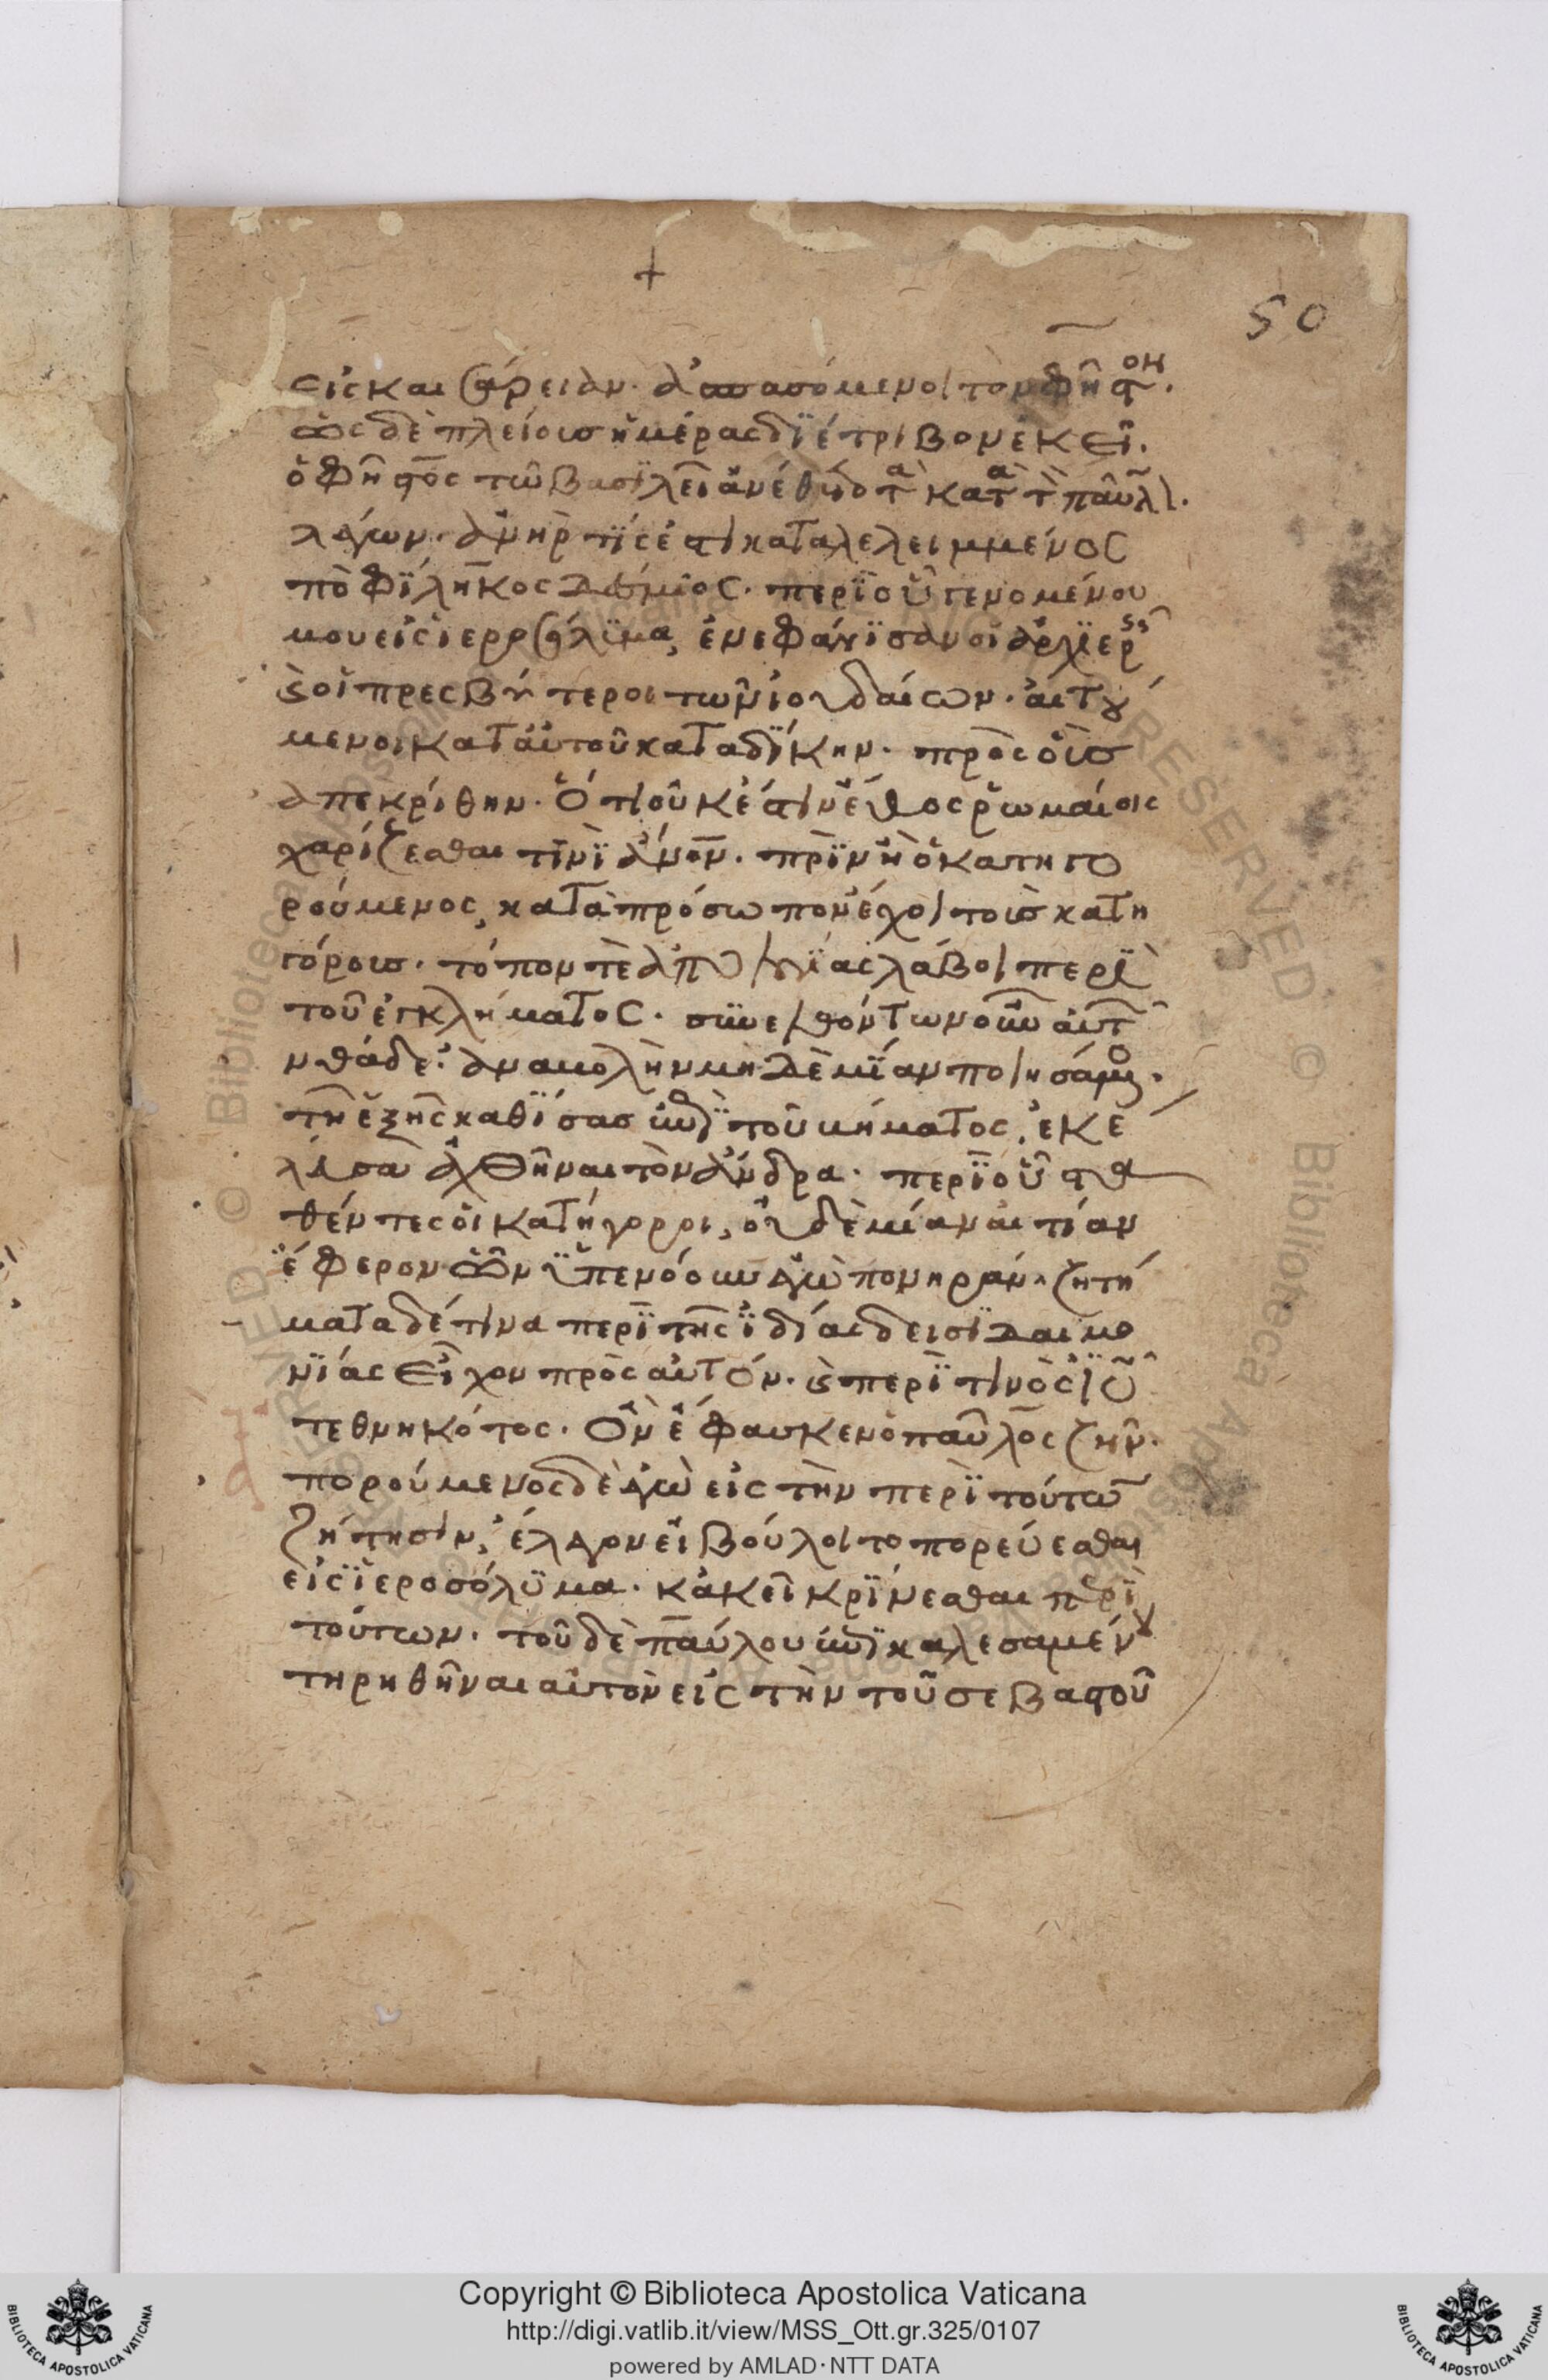 50
εἰς καισάρειαν. ἀσπασόμενοι τὸν φῆστον.
ὡς δὲ πλείοις ἡμέρας δϊέτριβον ἐκεῖ.
ὁ φῆστος τῶ βασϊλεῖ ἀνέθετο τὰ κατὰ τὸν παῦλον.
λέγων. ἀνήρ τΐς ἐστι καταλελειμμένος
πὸ φΐληκος δέσμϊος. περϊ οὗ γενομένου
μου εἰς ἱεροσόλϋμα, ἐνεφάνϊσαν οἱ ἀρχϊερεῖς
καὶ οἱ πρεσβύτεροι τῶν ἰουδαίων. αἰτού
μενοι κατ αὐτοῦ καταδΐκην. πρὸς οὓς
ἀπεκρίθην. ὅτι οὐκ ἔστιν ἔθος ῥωμαίοις
χαρίζεσθαι τινϊ ἄνον. πρϊν ἢ ὁ κατηγο
ρούμενος, κατὰ πρόσωπον ἔχοι τοὺς κατη
γόρους. τόπον τὲ ἀπολογΐας λάβοι περϊ
τοῦ ἐγκλήματος. σϋνελθόντων οὖν αὐτῶν
νθάδε. ἀναβολὴν μηδὲ μΐαν ποιησάμενος.
τῆ ἑξῆς καθΐσας ἐπϊ τοῦ βήματος, ἐκέ
λευσα ἀχθῆναι τὸν ἄνδρα. περϊ οὗ στα
θέντες οἱ κατήγοροι, οὐδὲ μίαν αἰτίαν
ἔφερον ὧν ϋπενόουν ἐγὼ πονηράν. ζητή
ματα δέ τινα περϊ τῆς ϊδίας δεισϊδαιμο
νΐας εἶχον πρὸς αὐτόν. καὶ περϊ τινὸς ιυ
τεθνηκότος. ὃν ἔφασκεν ὁ παῦλος ζῆν.
πορούμενος δὲ ἐγὼ εἰς τὴν περϊ τούτων
ζήτησιν, ἔλεγον εἰ βούλοιτο πορεύεσθαι
εἰς ϊεροσόλϋμα. κἀκεῖ κρΐνεσθαι περϊ
τούτων. τοῦ δὲ παύλου ἐπϊκαλεσαμένου
τηρηθῆναι αὐτὸν εἰς τὴν τοῦ σεβαστοῦ
Copyright © Biblioteca Apostolica Vaticana
http://digi.vatlib.it/view/MSS_Ott.gr.325/0107
powered by AMLAD·NTT DATA